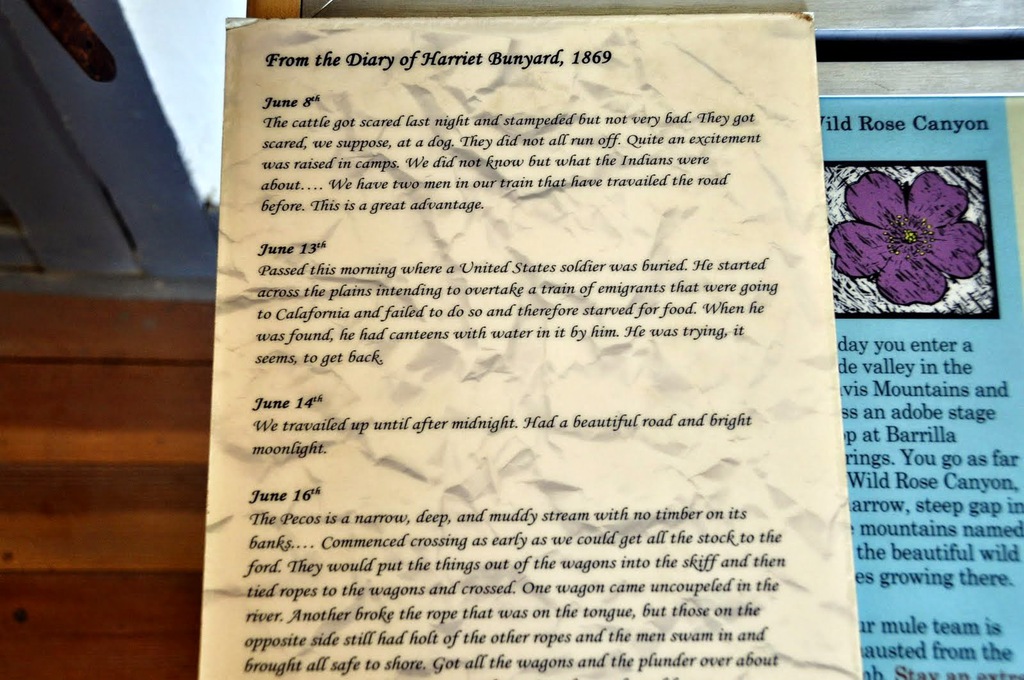 From the Diary of Harriet Bunyard, 1869
June 8th
The cattle got scared last night and stampeded but not very bad. They got
scared, we suppose, at a dog. They did not all run off. Quite an excitement
was raised in camps. We did not know but what the Indians were
about.... We have two men in our train that have travailed the road
before. This is a great advantage.
June 13th
Passed this morning where a United States soldier was buried. He started
across the plains intending to overtake a train of emigrants that were going
to Calafornia and failed to do so and therefore starved for food. When he
was found, he had canteens with water in it by him. He was trying, it
seems, to get back.
June 14th
We travailed up until after midnight. Had a beautiful road and bright
moonlight.
June 16th
The Pecos is a narrow, deep, and muddy stream with no timber on its
banks.... Commenced crossing as early as we could get all the stock to the
ford. They would put the things out of the wagons into the skiff and then
tied ropes to the wagons and crossed. One wagon came uncoupeled in the
river. Another broke the rope that was on the tongue, but those on the
opposite side still had holt of the other ropes and the men swam in and
brought all safe to shore. Got all the wagons and the plunder over about
Wild Rose Canyon
day you enter a
de valley in the
avis Mountains and
ss an adobe stage
op at Barrilla
rings. You go as far
Wild Rose Canyon,
arrow, steep gap in
mountains named
the beautiful wild
es growing there.
ur mule team is
hausted from the
mb. Stay an extra